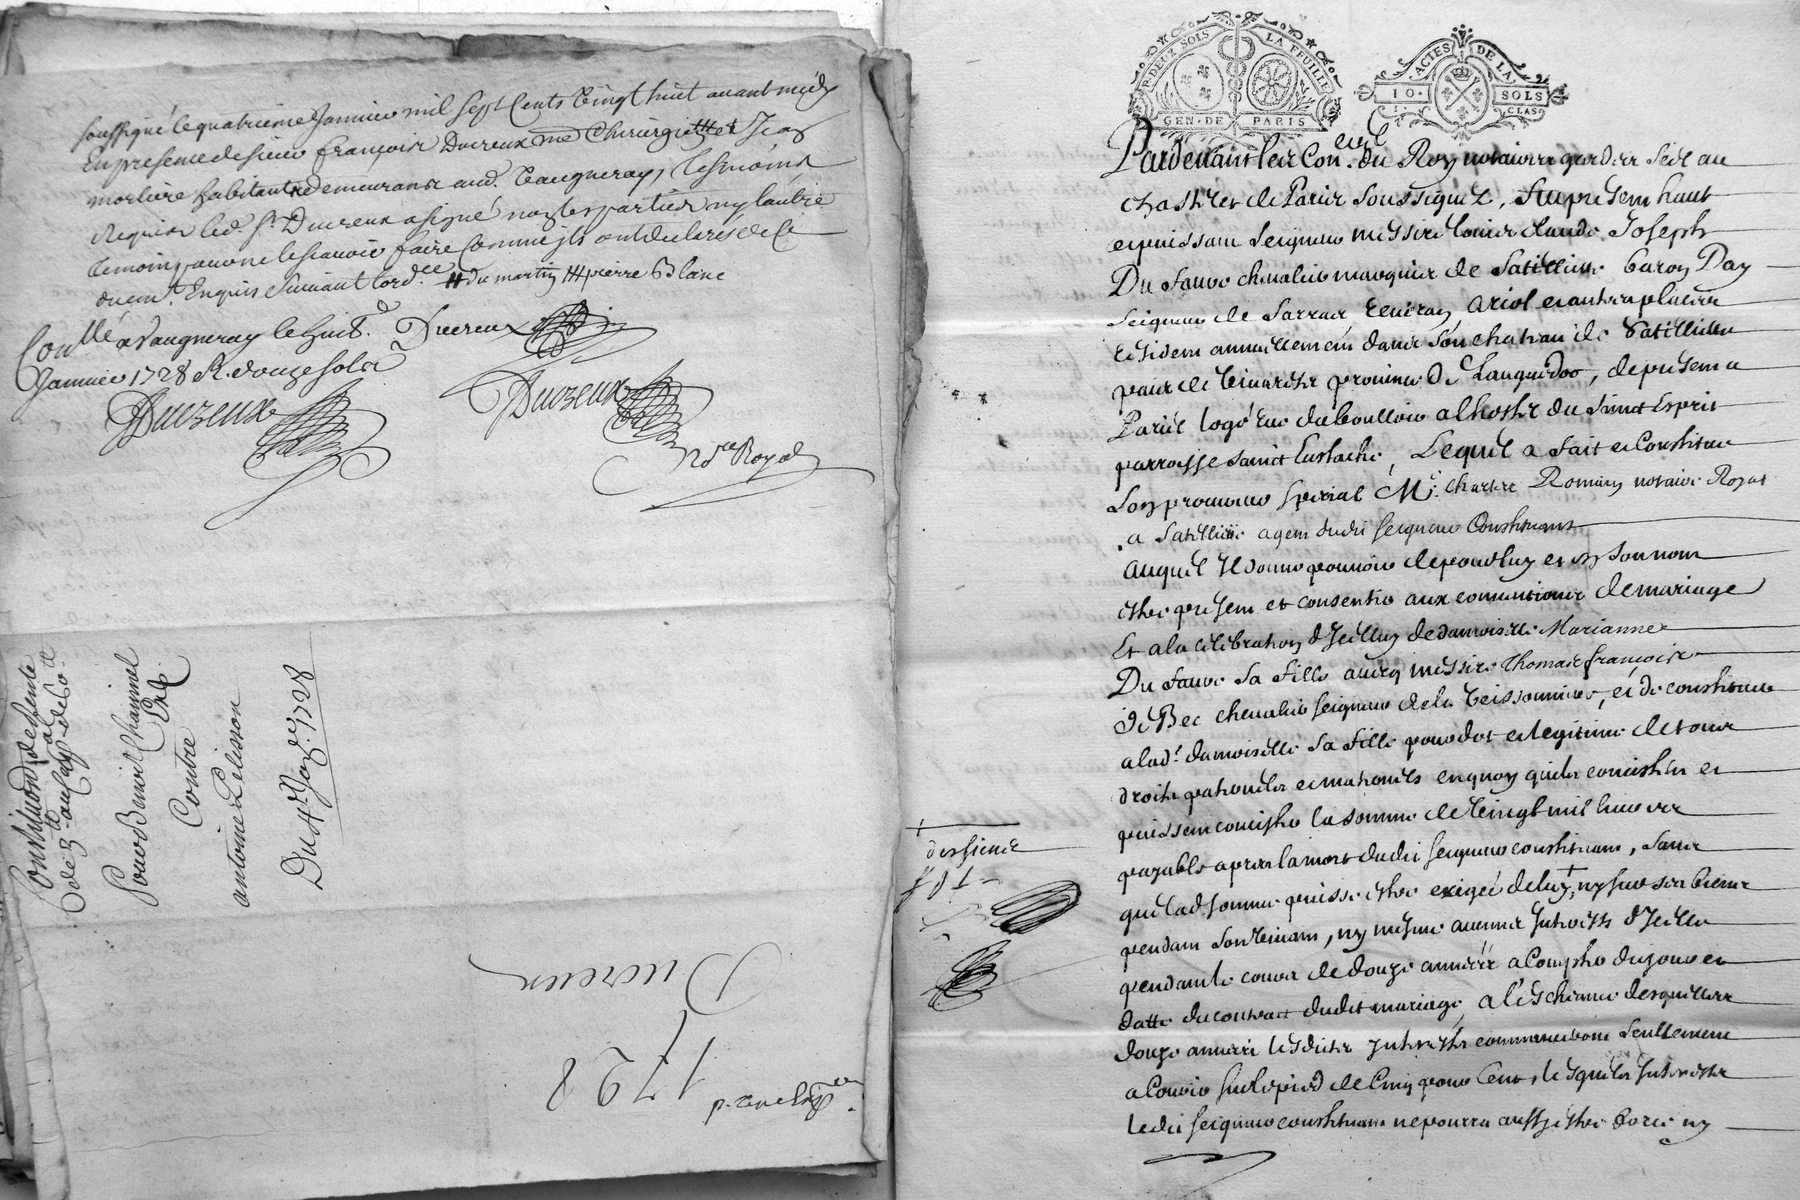 soussigné le quatrieme Janvier mil sept Cents Vingt huit avant midy
En presence de sieur françois Ducreux me Chirurgien et Jean
mortier habitants demeurans aud. Vaugneray, Tesmoins
Requis led. Sr. Ducreux a signé non les parties ny lautre
temoin pour ne lescavoir faire Comme ils ont declaré de ce
duem.t Enquis suivant lord.ce # du martin ### pierre Blanc
Conllé a Vaugneray le huit.
Janvier 1728 R. douze sols
Ducreux
Ducreux
Ducreux
No.re Royal
Pour Benoit Chaninel
Contre
antoine Pelisson
Du 4e Janer 1728
Ducreux
1728
P. DEUX SOLS LA FEUILLE
GEN. DE PARIS
ACTES DE LA
10. SOLS
1. CLAS.
Pardevant les Con.ers du Roy notaires gardes scel au
chastelet de Paris soussignez, fut present haut
et puissant seigneur messire Louis Claude Joseph
Du faure chevalier marquis de Satillieu baron Day
seigneur de Sarras Seuray Ariol et autres places
residant annuellement dans son chateau de Satillieu
païs de Vivarestz province de Languedoc, de present a
Paris logé rue du bouloir a lhostel du Sainct Esprit
parroisse sainct Eustache, Lequel a fait et Constitué
son procureur special Me. Charles Romain notaire Royal
a Satillieu agent dudit seigneur Constituant
auquel Il donne pouvoir de pour luy et en son nom
estre present et consentir aux conventions de mariage
Et a la celebration d'Icelluy de damoiselle Marianne
Du faure sa fille avecq messire Thomas françois
De Bec chevalier seigneur de la Veissonniere, et de constituer
a lad. damoiselle sa fille pour dot et legitime de tous
droits paternels et maternels en quoy quils consistent et
puissent consister la somme de Vingt mil livres
payable apres la mort dudit seigneur constituant, sans
que lad. somme puisse estre exigée de luy, ny sur ses biens
pendant son vivant, ny mesme aucuns Interests d'Icelle
pendant le cours de douze années a Compter du jour et
datte du contract dudit mariage, a l'Escheance desquelles
douze années lesdicts Interests commenceront seullement
a Courir sur le pied de Cinq pour Cent, lesquels Interests
ledit seigneur constituant ne pourra aussy estre forcé ny